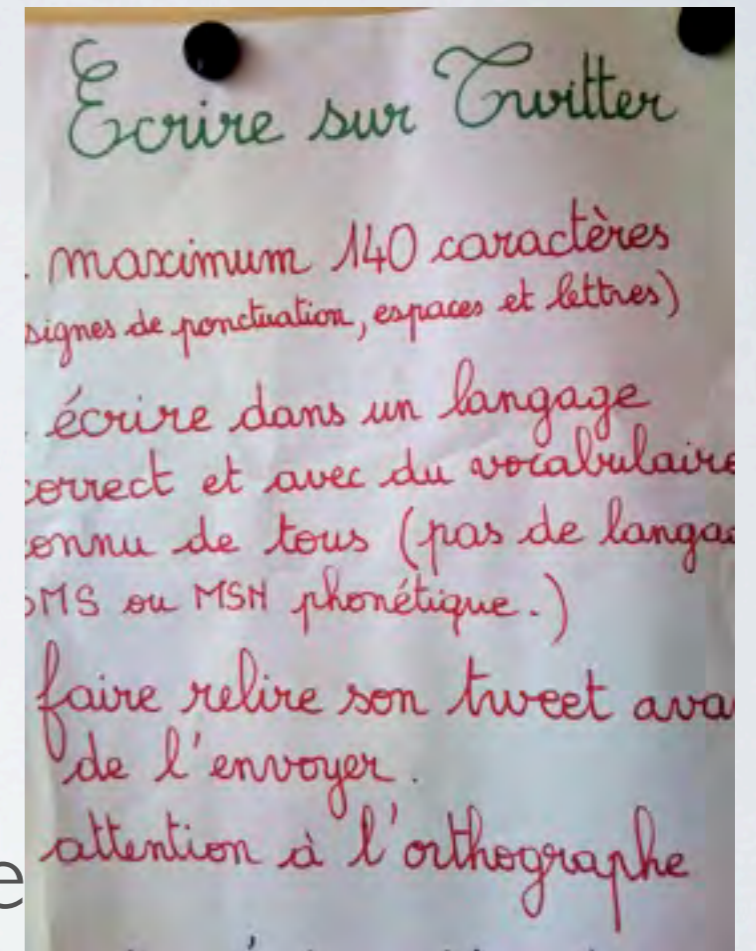 Écrire sur Twitter
. maximum 140 caractères
signes de ponctuation, espaces et lettres)
. écrire dans un langage
correct et avec du vocabulaire
connu de tous (pas de langag
SMS ou MSN phonétique.)
faire relire son tweet ava
de l'envoyer.
attention à l'orthographe
e